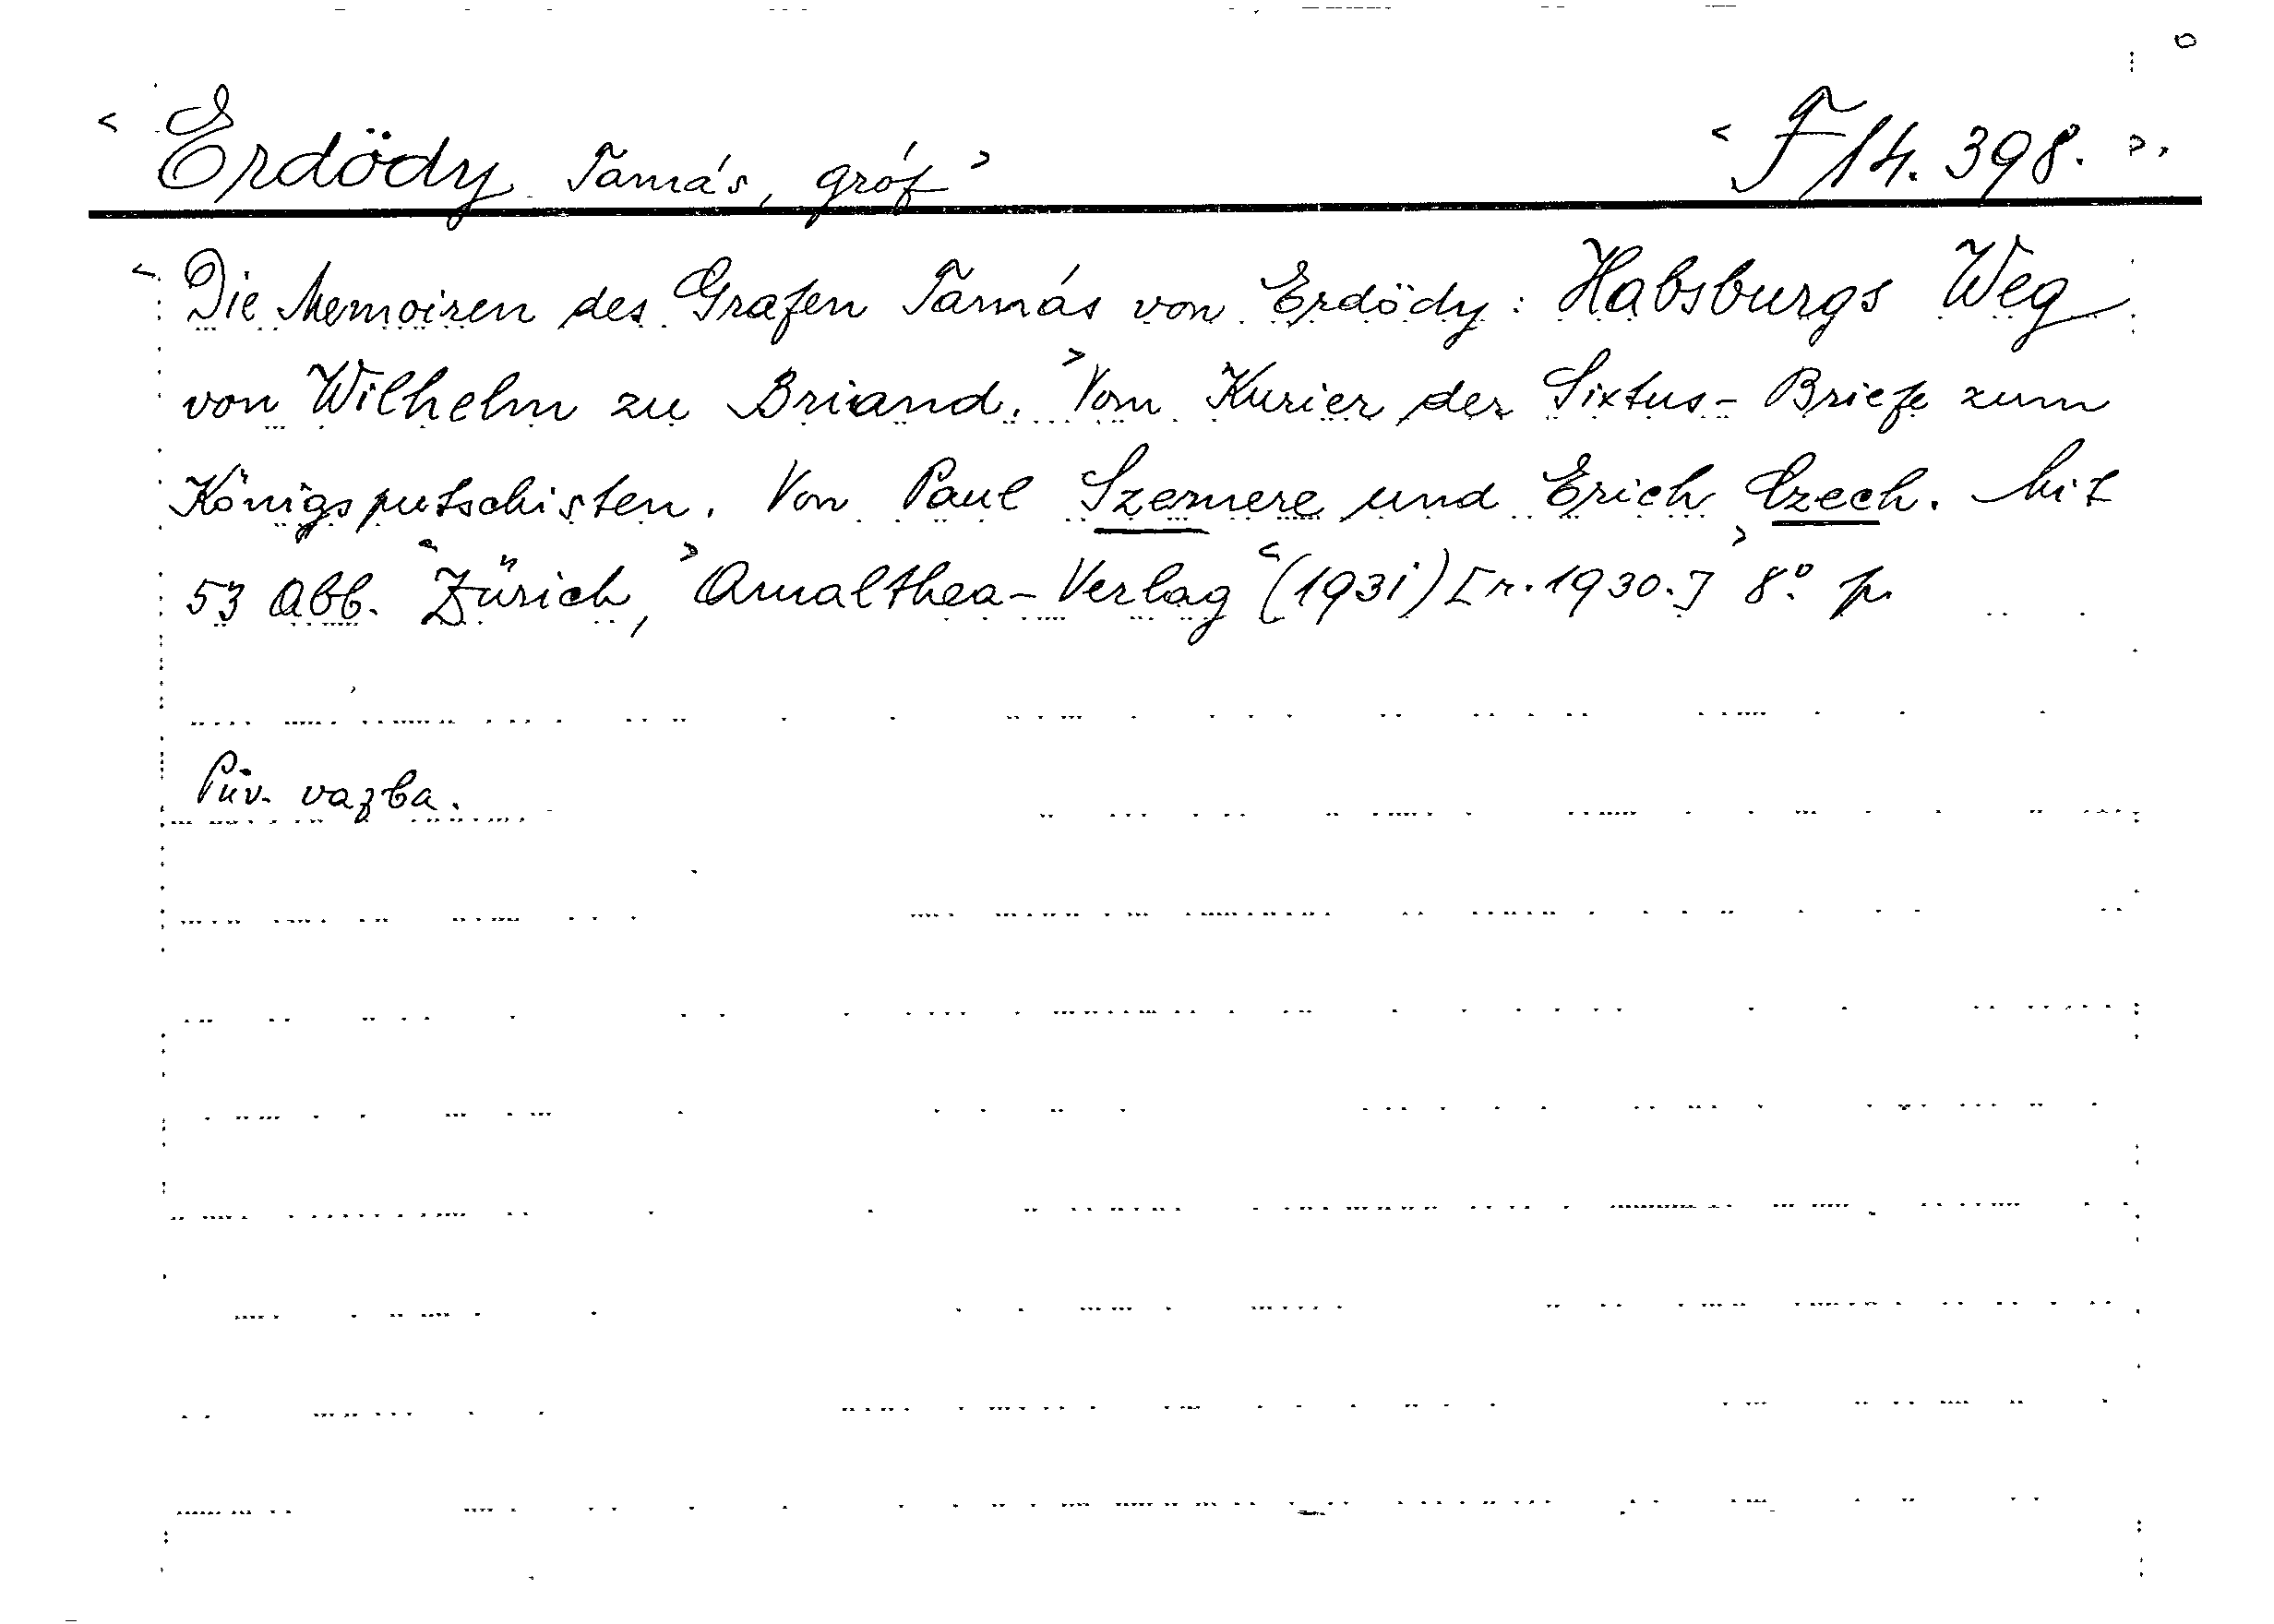 < Erdödy Tamás, gróf > < F 14.398. >.
< Die Memoiren des Grafen Tamás von Erdödy: Habsburgs Weg
von Wilhelm zu Briand. > Vom Kurier der Sixtus-Briefe zum
Königsputschisten. Von Paul Szemere und Erich Czech. Mit
53 Abb. < Zürich, > Amalthea-Verlag < (1931) [r. 1930.] > 8° p.
Pův. vazba.